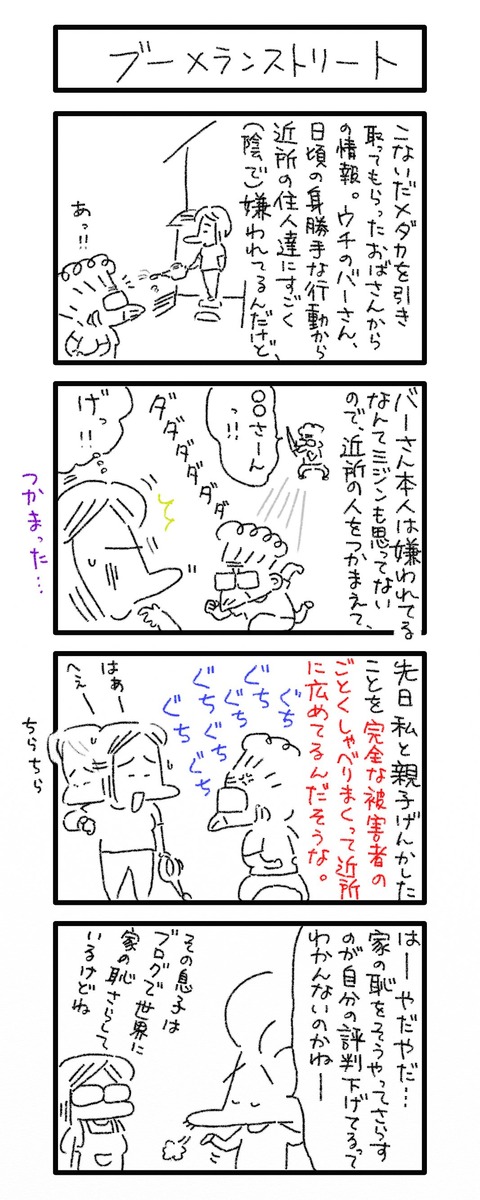 ブーメランストリート
こないだメダカを引き
取ってもらったおばさんから
の情報。ウチのバーさん、
日頃の身勝手な行動から
近所の住人達にすごく
(陰で)嫌われてるんだけど、
あっ!!
バーさん本人は嫌われてる
なんてミジンも思ってない
ので、近所の人をつかまえて、
○○さーん
っ!!
ダダダダダダ
げっ
!!
つかまった…
先日私と親子げんかした
ことを完全な被害者の
ごとくしゃべりまくって近所
に広めてるんだそうな。
ぐち
ぐち
ぐち
ぐち
ぐち
ぐち
ぐち
はぁー
へぇー
ちらちら
はーやだやだ…
家の恥をそうやってさらす
のが自分の評判下げてるって
わかんないのかねー
その息子は
ブログで世界に
家の恥さらして
いるけどね